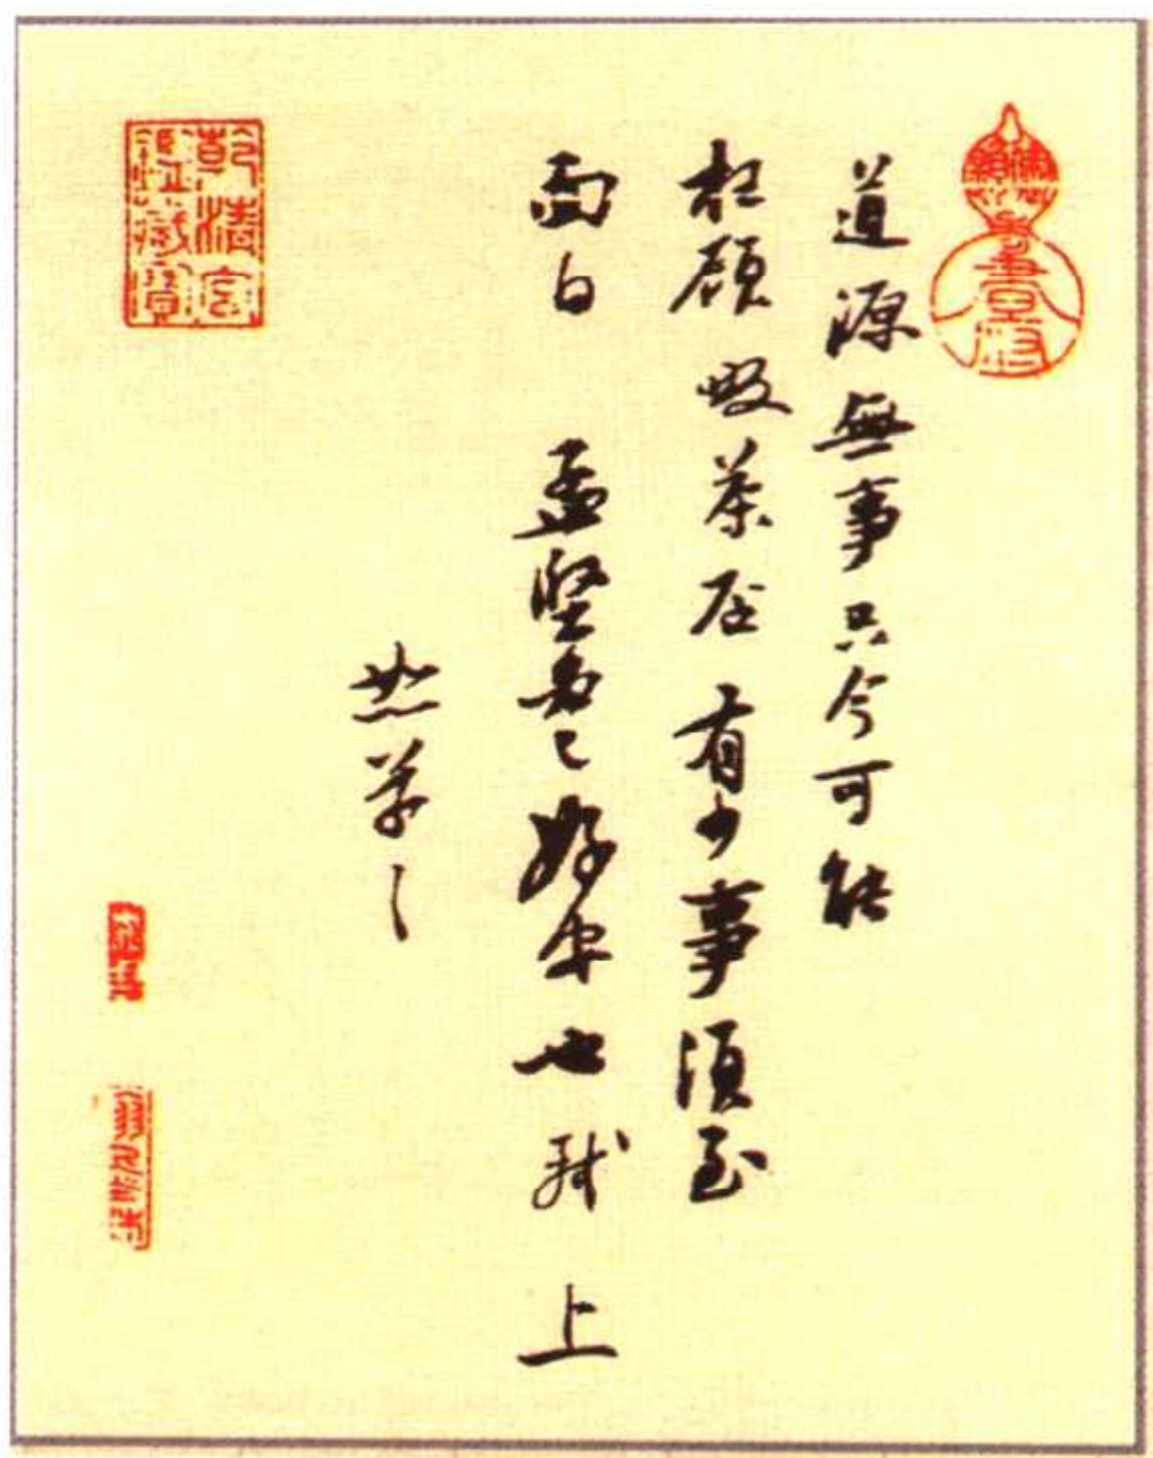 道源無事只今可能
枉顧啜茶否有少事須至
面白孟堅必已好安也軾上
恕草草
乾清宮
鑑藏寶